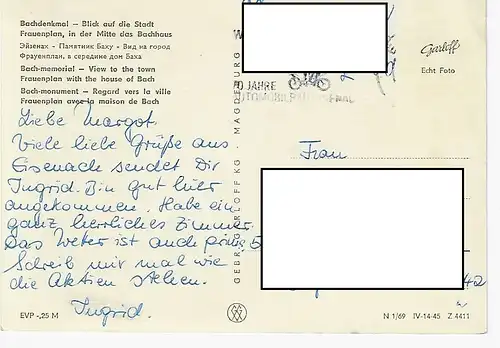 Bachdenkmal – Blick auf die Stadt
Frauenplan, in der Mitte das Bachhaus
Эйзенах - Памятник Баху - Вид на город
Фрауенплан, в середине дом Баха
Bach-memorial – View to the town
Frauenplan with the house of Bach
Bach-monument – Regard vers la ville
Frauenplan avec la maison de Bach
Liebe Margot.
Viele liebe Grüße aus
Eisenach sendet Dir
Ingrid. Bin gut hier
angekommen. Habe ein
ganz herrliches Zimmer.
Das Wetter ist auch prima.
Schreib mir mal wie
die Aktien stehen.
Ingrid.
EVP -,25 M
GEBR. GARLOFF KG MAGDEBURG
70 JAHRE
AUTOMOBILBAU
Garloff
Echt Foto
Frau
42
N 1/69 IV-14-45 Z 4411